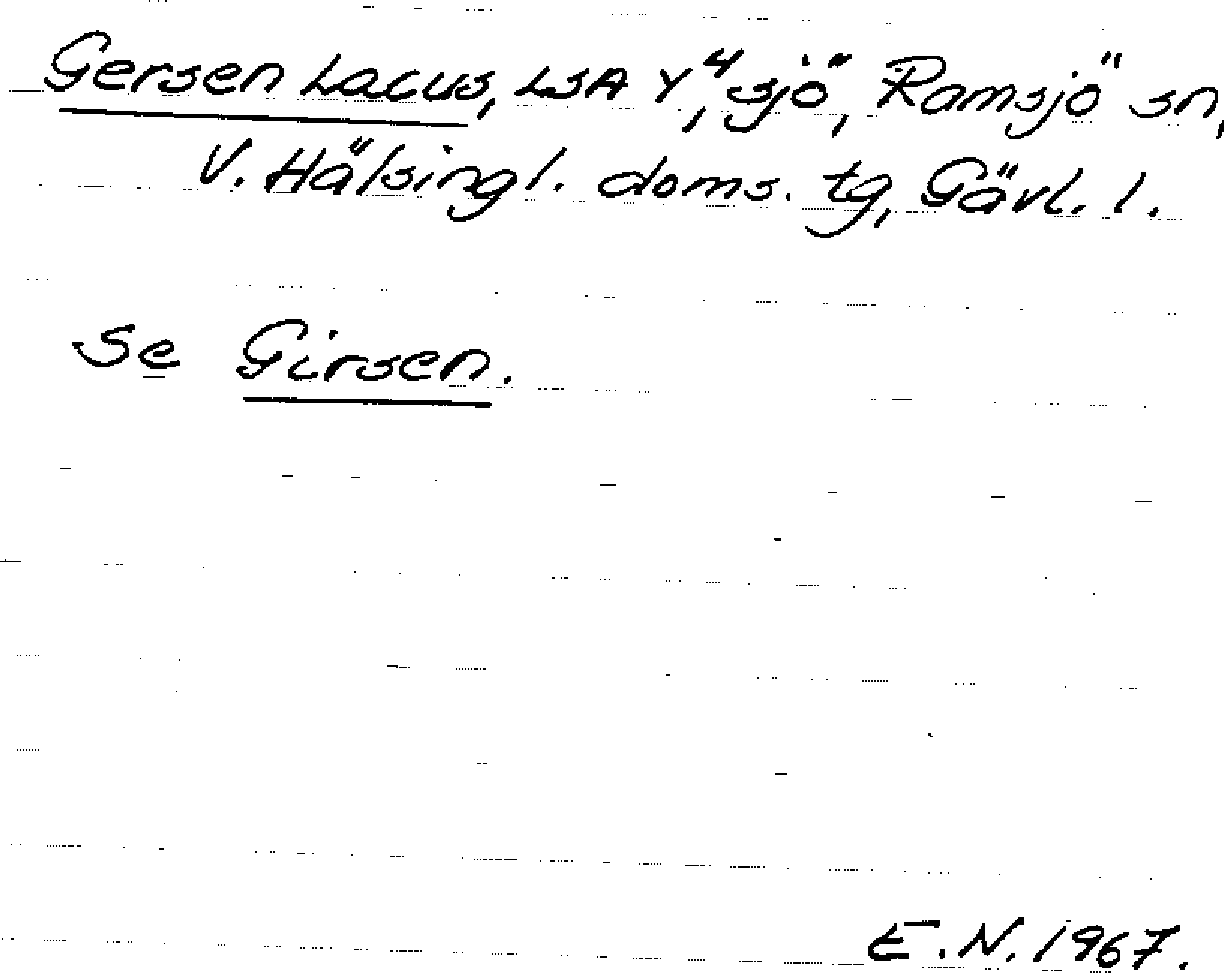 Gersen Lacus, LSA Y⁴, sjö, Ramsjö sn,
V. Hälsingl. doms. tg, Gävl. l.
Se Girsen.
E.N. 1967.